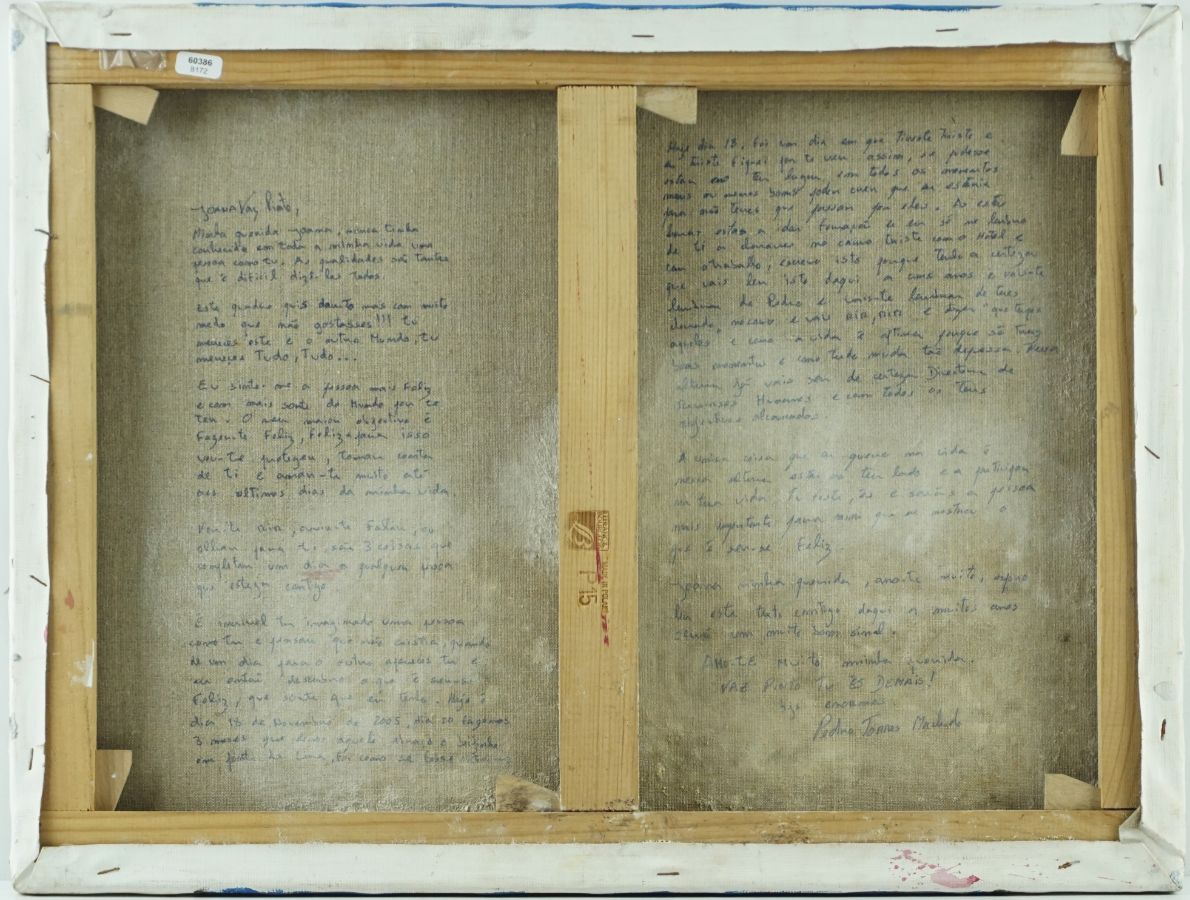 60386
8172
Joana Vaz Pinto,
Minha querida Joana, nunca tinha
conhecido em toda a minha vida uma
pessoa como tu. As qualidades são tantas
que é difícil dizê-las todas.
Este quadro quis dar-to mas com muito
medo que não gostasses!!! Tu
mereces este e o outro Mundo, tu
mereces Tudo, Tudo...
Eu sinto-me a pessoa mais Feliz
e com mais sorte do Mundo por te
ter. O meu maior objectivo é
Fazer-te Feliz, Feliz e para isso
vou-te proteger, tomar conta
de ti e amar-te muito até
aos últimos dias da minha vida
Ver-te rir, ouvir-te Falar, ou
olhar para ti, são 3 coisas que
completam um dia a qualquer pessoa
que esteja contigo.
É incrível ter imaginado uma pessoa
como tu e pensar que não existia, quando
de um dia para o outro apareces tu e
eu então descubro o que é ser-se
Feliz, que sorte que eu tenho. Hoje é
dia 18 de Novembro de 2005, dia 20 fazemos
3 meses que demos aquele beijinho
em Ponte de Lima, foi como se fosse
Hoje dia 18, foi um dia em que tiveste triste e
eu triste fiquei por te ver assim, se pudesse
estar no teu lugar em todos os momentos
mais ou menos bons podes crer que eu estaria
para não teres que passar por eles. Ao
estas a dar formação e eu só me lembro
de ti a no carro triste com o Hotel e
com o trabalho, escrevo isto porque tenho a certeza
que vais ler isto daqui a uns anos e vais-te
lembrar do Pedro e vais-te lembrar de teres
chorado, no carro e vais RIR, RIR e dizer que tempos
aqueles e como a vida é óptima porque só traz
bons momentos e como tudo muda tão depressa. Nessa
altura já vais ser de certeza Directora de
Recursos Humanos e com todos os teus
objectivos alcançados.
A única coisa que eu quero na vida e
nessa altura estar ao teu lado e a participar
na tua vida. Tu foste, és e serás a pessoa
mais importante para mim que me mostrou o
que é ser-se Feliz.
Joana minha querida, amo-te muito, espero
ler este texto contigo daqui a muitos anos
será um muito bom sinal.
AMO-TE Muito minha querida.
VAZ PINTO TU ÉS DEMAIS!
bjs enormes
Pedro Torres Machado
P 15